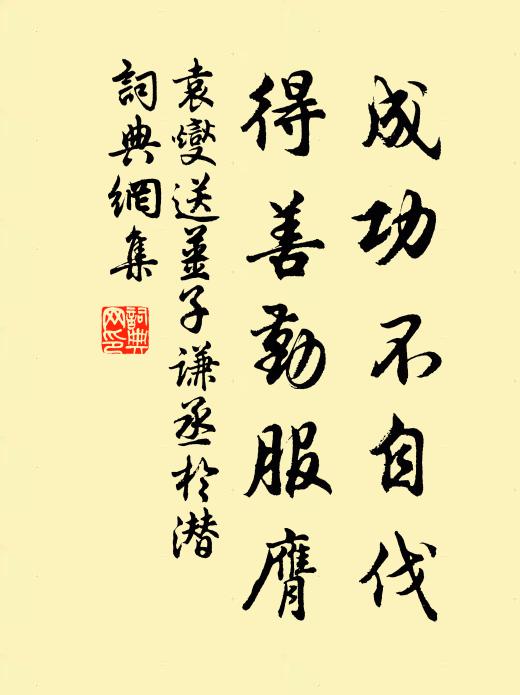 成功不自伐
得善勤服膺
袁燮送薑子谦丞於潜
詞典網集
詞典网印